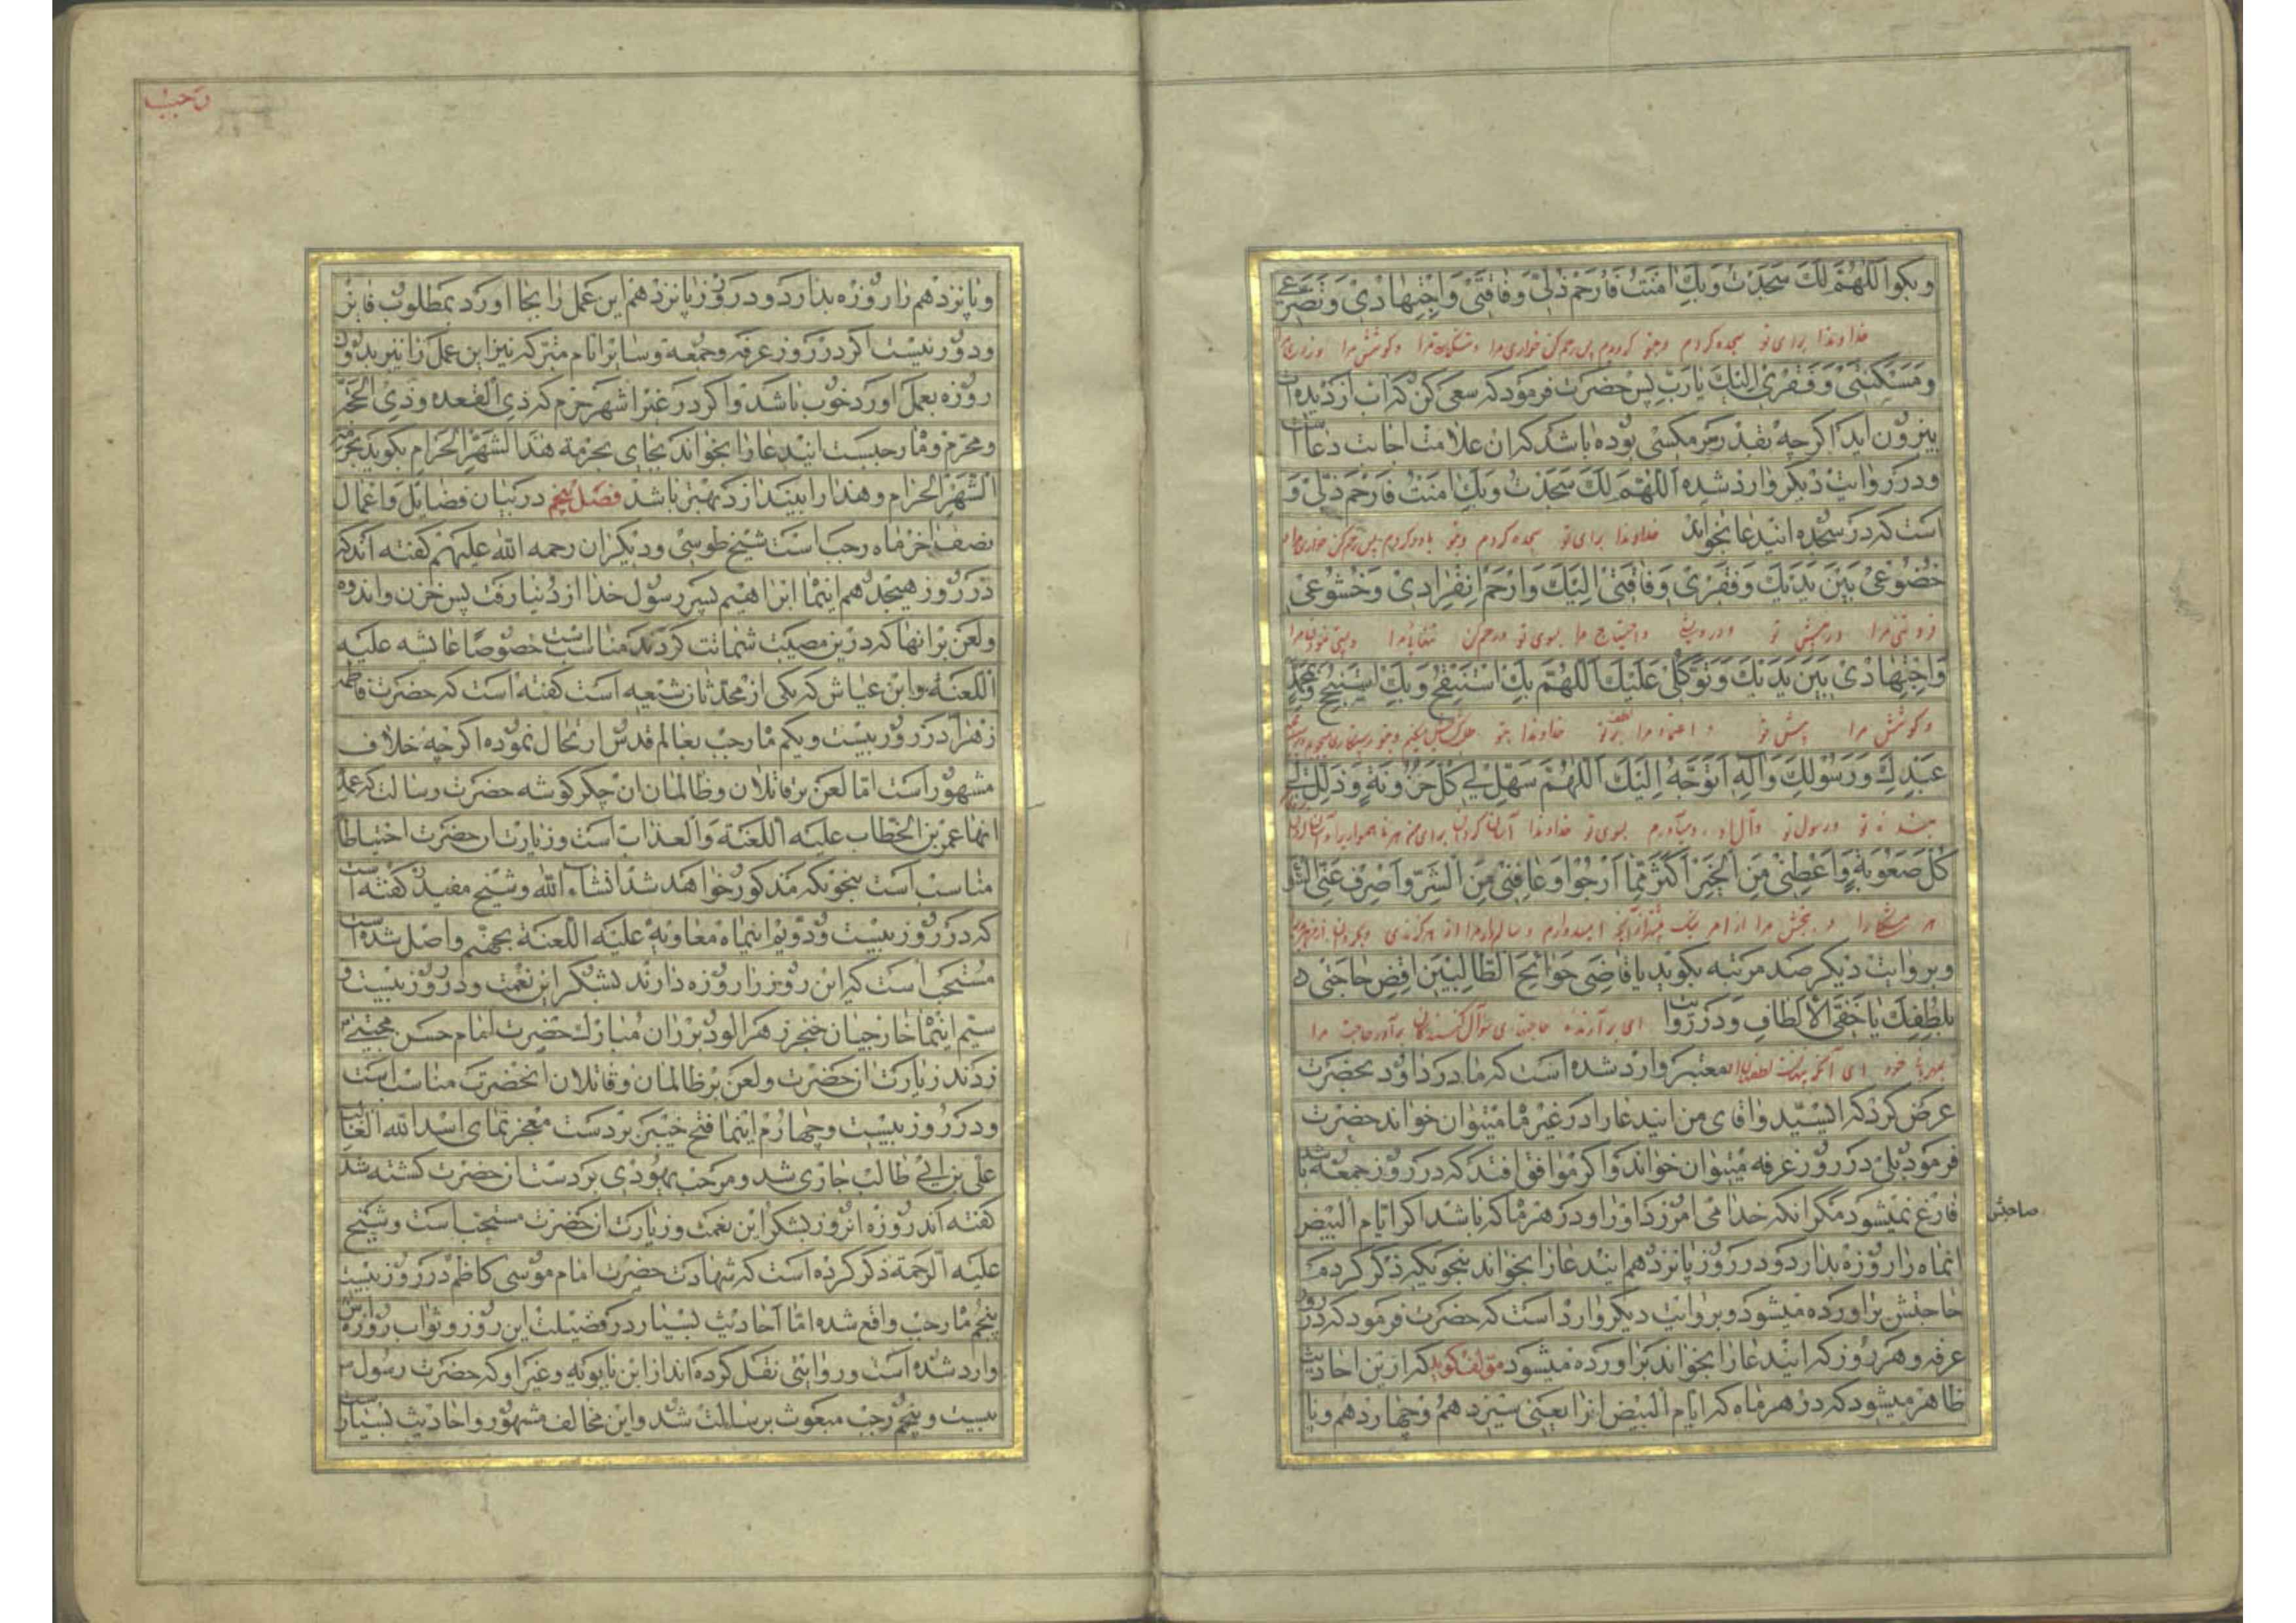 وبکو اَللّٰهُمَّ لَكَ سَجَدْتُ وَبِكَ اٰمَنْتُ فَارْحَمْ ذُلّی وَفٰاقَتی وَاجْتِهٰادی وَتَضَرُّعی
خداوندا برای تو سجده کردم وبتو کرویدم پس رحم کن خواری مرا وکوشش مرا
وَمَسْکَنَتی وَفَقْری اِلَیْكَ یٰارَبِّ پس حضرت فرمود که سعی کن که اب از دیده ات
بیرون اید اکرچه بقدر سر مکسی بوده باشد که ان علامت اجابت دعاست
ودر روایت دیکر وارد شده اَللّٰهُمَّ لَكَ سَجَدْتُ وَبِكَ اٰمَنْتُ فَارْحَمْ ذُلّی وَ
است که در سجده ایندعا بخواند خداوندا برای تو سجده کردم وبتو باور کردم پس رحم کن خواری مرا
خُضُوعی بَیْنَ یَدَیْكَ وَفَقْری وَفٰاقَتی اِلَیْكَ وَارْحَمْ اِنْفِرٰادی وَخُشُوعی
فروتنی مرا در پیش تو ودرویشی واحتیاج مرا بسوی تو ورحم کن تنهائی مرا
وَاجْتِهٰادی بَیْنَ یَدَیْكَ وَتَوَکُّلی عَلَیْكَ اَللّٰهُمَّ بِكَ اَسْتَفْتِحُ وَبِكَ اَسْتَنْجِحُ وَبِمُحَمَّدٍ
وکوشش مرا پیش تو واعتماد مرا بر تو خداوندا بتو
عَبْدِكَ وَرَسُولِكَ وَاٰلِهِ اَتَوَجَّهُ اِلَیْكَ اَللّٰهُمَّ سَهِّلْ لی کُلَّ حُزُونَةٍ وَذَلِّلْ لی
بنده تو ورسول تو وآل او رو میآورم بسوی تو خداوندا آسان کردان برای من هر ناهمواری را
کُلَّ صُعُوبَةٍ وَاَعْطِنی مِنَ الْخَیْرِ اَکْثَرَ مِمّٰا اَرْجُوا وَعٰافِنی مِنَ الشَّرِّ وَاصْرِفْ عَنِّی السُّوءَ
هر مشکلی را وببخش مرا از امر نیک بیشتر از آنچه امیدوارم
وبروایت دیکر صد مرتبه بکوید یٰاقٰاضِیَ حَوٰائِجِ الطّٰالِبینَ اِقْضِ حٰاجَتی
بِلُطْفِكَ یٰاخَفِیَّ الْاَلْطٰافِ ودر روایت ای برآرنده حاجتهای سؤال کنندکان برآور حاجت مرا
معتبر وارد شده است که مادر داود بحضرت
عرض کرد که ایسیّد واقای من ایندعا را در غیر ماه میتوان خواند حضرت
فرمود بلی در روز عرفه میتوان خواند واکر موافق افتد که در روز جمعه باشد
فارغ نمیشود مکر انکه خدا می امرزد او را ودر هر ماه که باشد اکر ایّام البیض
صاحبش
انماه را روزه بدارد ودر روز پانزدهم ایندعا را بخواند بنحویکه ذکر کردم
حاجتش براورده میشود وبروایت دیکر وارد است که حضرت فرمود که در روز
عرفه وهر روز که ایندعا را بخواند براورده میشود مؤلف کوید که ازین احادیث
ظاهر میشود که در هر ماه که ایّام البیض انرا یعنی سیزدهم وچهاردهم وپا
رجب
وپانزدهم را روزه بدارد ودر روز پانزدهم این عمل را بجا اورد بمطلوب فایز
ودور نیست اکر در روز عرفه وجمعه وسایر ایام متبرکه نیز این عمل را نیز بدون
روزه بعمل اورد خوب باشد واکر در غیر اشهر حرم که ذی القعده وذی الحجه
ومحرّم وماه رجبست ایندعا را بخواند بجای بحرمة هذا الشهر الحرام بکوید بحرمة
الشهر الحرام وهذا را بیندازد بهتر باشد فصل پنجم در بیان فضایل واعمال
نصف اخر ماه رجب است شیخ طوسی ودیکران رحمه الله علیهم کفته اند که
در روز هیجدهم اینماه ابراهیم پسر رسول خدا از دنیا رفت پس حزن واندوه
ولعن بر انها که درین مصیبت شماتت کردند مناسب است خصوصًا عایشه علیه
اللعنه وابن عیاش که یکی از محدّثان شیعه است کفته است که حضرت فاطمه
زهرا در روز بیست ویکم ماه رجب بعالم قدس ارتحال نموده اکرچه خلاف
مشهور است امّا لعن بر قاتلان وظالمان ان جکر کوشه حضرت رسالت که عمدۀ
انها عمر بن الخطّاب علیه اللعنة والعذاب است وزیارت ان حضرت احتیاطا
مناسب است بنحویکه مذکور خواهد شد انشاء الله وشیخ مفید کفته است
که در روز بیست ودویم اینماه معاویه علیه اللعنة بجهنم واصل شده است
مستحب است که این روز را روزه دارند بشکر این نعمت ودر روز بیست و
سیم اینماه خارجیان خنجر زهرالود بر ران مبارك حضرت امام حسن مجتبی
زدند زیارت ان حضرت ولعن بر ظالمان وقاتلان انحضرت مناسب است
ودر روز بیست وچهارم اینماه فتح خیبر بر دست معجز نمای اسد الله الغالب
علی بن ابی طالب جاری شد ومرحب یهودی بر دست ان حضرت کشته شد
کفته اند روزه انروز بشکر این نعمت وزیارت ان حضرت مستحب است وشیخ
علیه الرحمة ذکر کرده است که شهادت حضرت امام موسی کاظم در روز بیست
پنجم ماه رجب واقع شده امّا احادیث بسیار در فضیلت این روز وثواب روزه اش
وارد شده است وروایتی نقل کرده اند از ابن بابویه وغیر او که حضرت رسول
بیست وپنجم رجب مبعوث برسالت شد واین مخالف مشهور واحادیث بسیار است